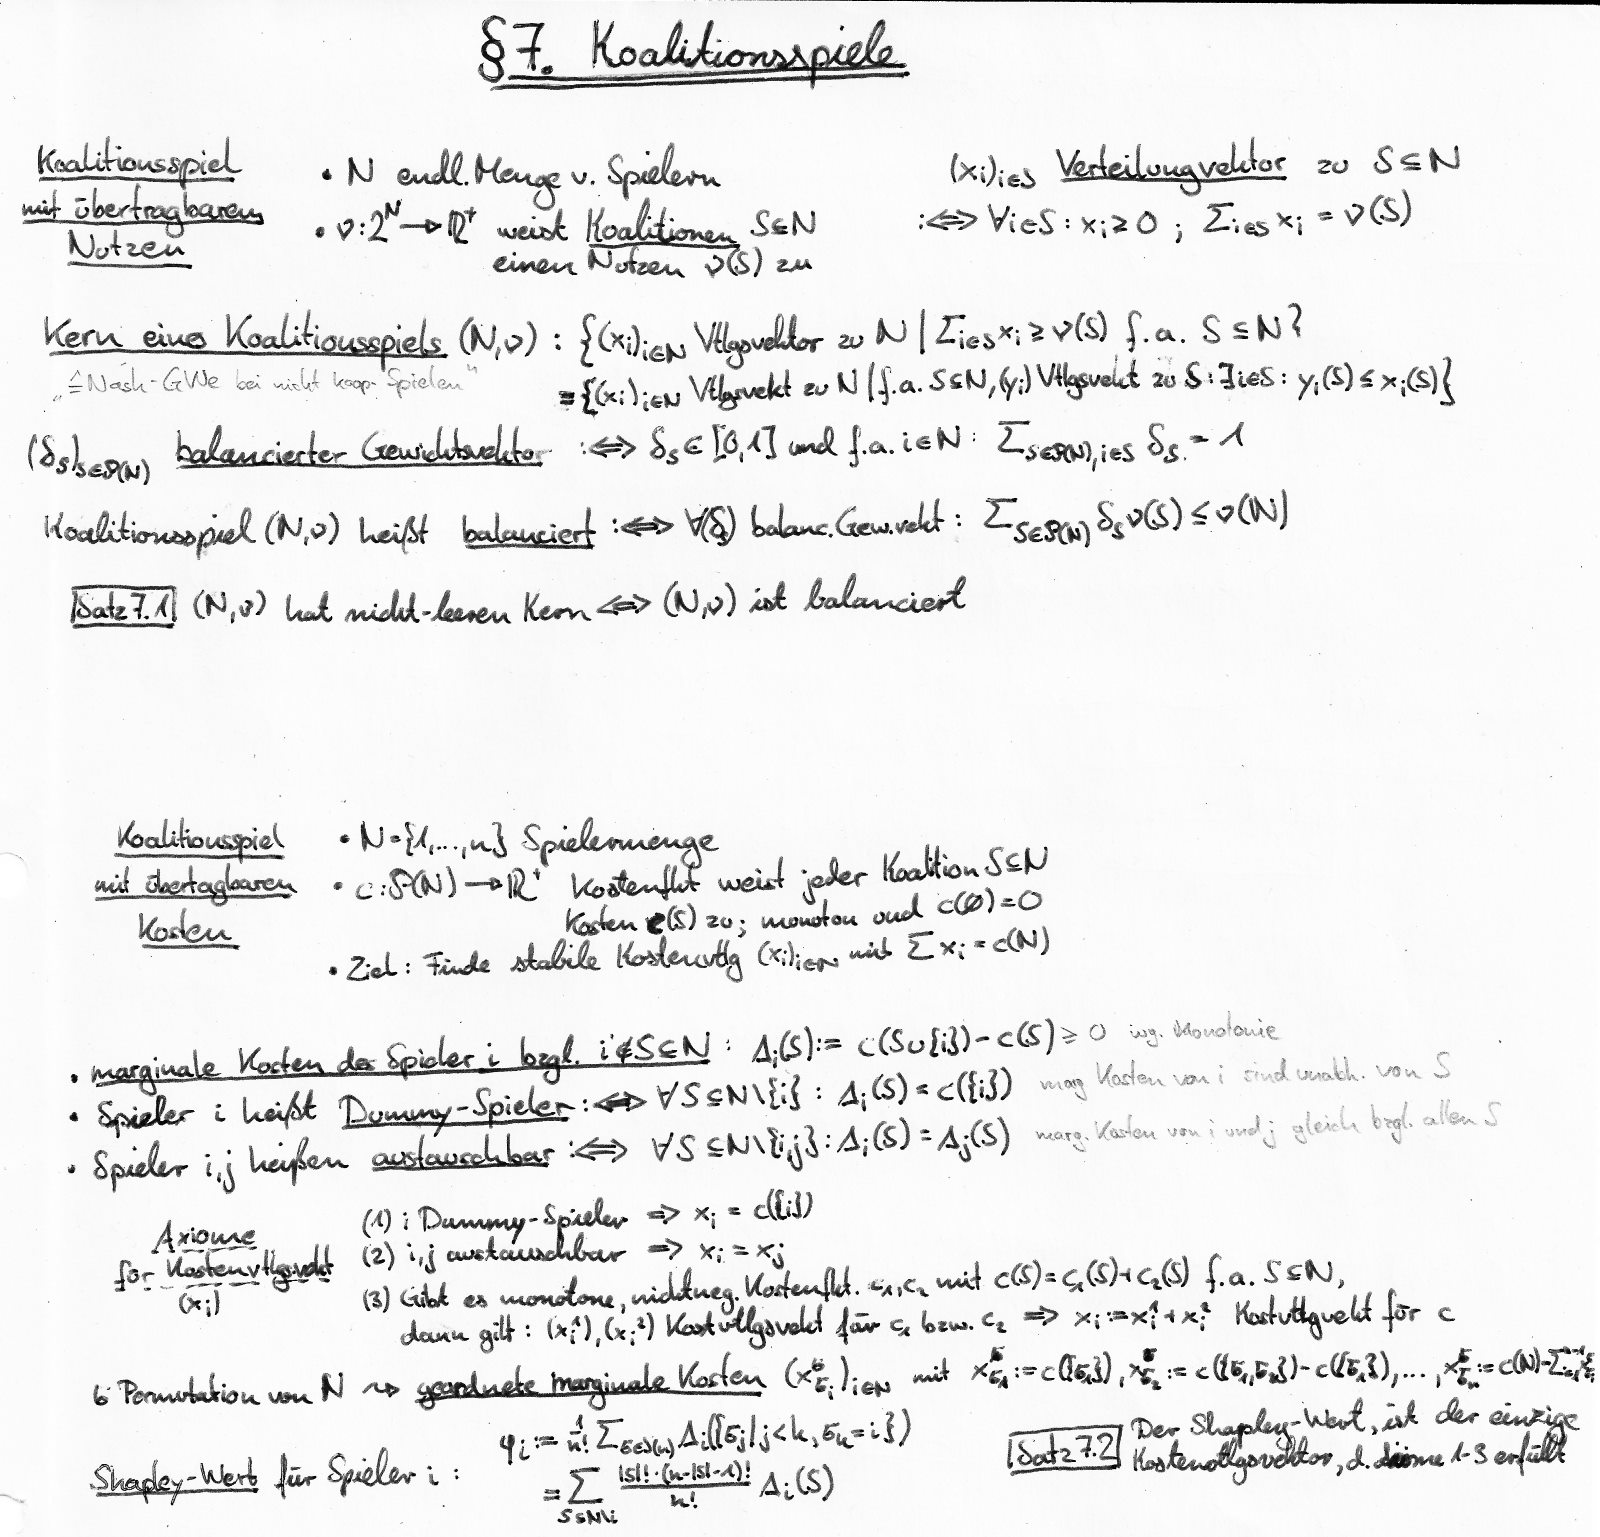 §7. Koalitionsspiele
Koalitionsspiel
mit übertragbarem
Nutzen
• N endl. Menge v. Spielern
• ν: 2^N → ℝ⁺ weist Koalitionen S⊆N
einen Nutzen ν(S) zu
(x_i)_{i∈S} Verteilungvektor zu S⊆N
:⇔ ∀i∈S: x_i ≥ 0 ; Σ_{i∈S} x_i = ν(S)
Kern eines Koalitionsspiels (N,ν) : {(x_i)_{i∈N} Vtlgsvektor zu N | Σ_{i∈S} x_i ≥ ν(S) f.a. S⊆N}
„≙Nash-GWe bei nicht koop. Spielen"
= {(x_i)_{i∈N} Vtlgsvekt zu N | f.a. S⊆N, (y_i) Vtlgsvekt zu S: ∃i∈S: y_i(S) ≤ x_i(S)}
(δ_S)_{S∈P(N)} balancierter Gewichtsvektor :⇔ δ_S ∈ [0,1] und f.a. i∈N: Σ_{S∈P(N), i∈S} δ_S = 1
Koalitionsspiel (N,ν) heißt balanciert :⇔ ∀(δ_S) balanc. Gew.vekt : Σ_{S∈P(N)} δ_S ν(S) ≤ ν(N)
Satz 7.1 (N,ν) hat nicht-leeren Kern ⇔ (N,ν) ist balanciert
Koalitionsspiel
mit übertagbaren
Kosten
• N={1,...,n} Spielermenge
• c: P(N) → ℝ⁺ Kostenfkt weist jeder Koalition S⊆N
Kosten c(S) zu; monoton und c(∅)=0
• Ziel: Finde stabile Kostenvtlg (x_i)_{i∈N} mit Σ x_i = c(N)
• marginale Kosten des Spieler i bzgl. i∉S⊆N : Δ_i(S) := c(S∪{i}) - c(S) ≥ 0 wg. Monotonie
• Spieler i heißt Dummy-Spieler :⇔ ∀S⊆N\{i} : Δ_i(S) = c({i}) marg Kosten von i sind unabh. von S
• Spieler i,j heißen austauschbar :⇔ ∀S⊆N\{i,j} : Δ_i(S) = Δ_j(S) marg. Kosten von i und j gleich bzgl. allen S
Axiome
für Kostenvtlgsvekt
(x_i)
(1) i Dummy-Spieler ⇒ x_i = c({i})
(2) i,j austauschbar ⇒ x_i = x_j
(3) Gibt es monotone, nichtneg. Kostenfkt. c_1,c_2 mit c(S) = c_1(S)+c_2(S) f.a. S⊆N,
dann gilt : (x_i^1),(x_i^2) Kostvtlgsvekt für c_1 bzw. c_2 ⇒ x_i := x_i^1 + x_i^2 Kostvtlgvekt für c
σ Permutation von N ⇝ geordnete marginale Kosten (x^σ_{σ_i})_{i∈N} mit x^σ_{σ_1} := c({σ_1}), x^σ_{σ_2} := c({σ_1,σ_2}) - c({σ_1}), ..., x^σ_{σ_n} := c(N) - Σ_{i=1}^{n-1} x^σ_{σ_i}
Shapley-Wert für Spieler i :
φ_i := 1/n! Σ_{σ∈S(n)} Δ_i({σ_j | j<k, σ_k = i})
= Σ_{S⊆N\i} |S|!·(n-|S|-1)!/n! Δ_i(S)
Satz 7.2 Der Shapley-Wert, ist der einzige
Kostenvtlgsvektor, d. Axiome 1-3 erfüllt